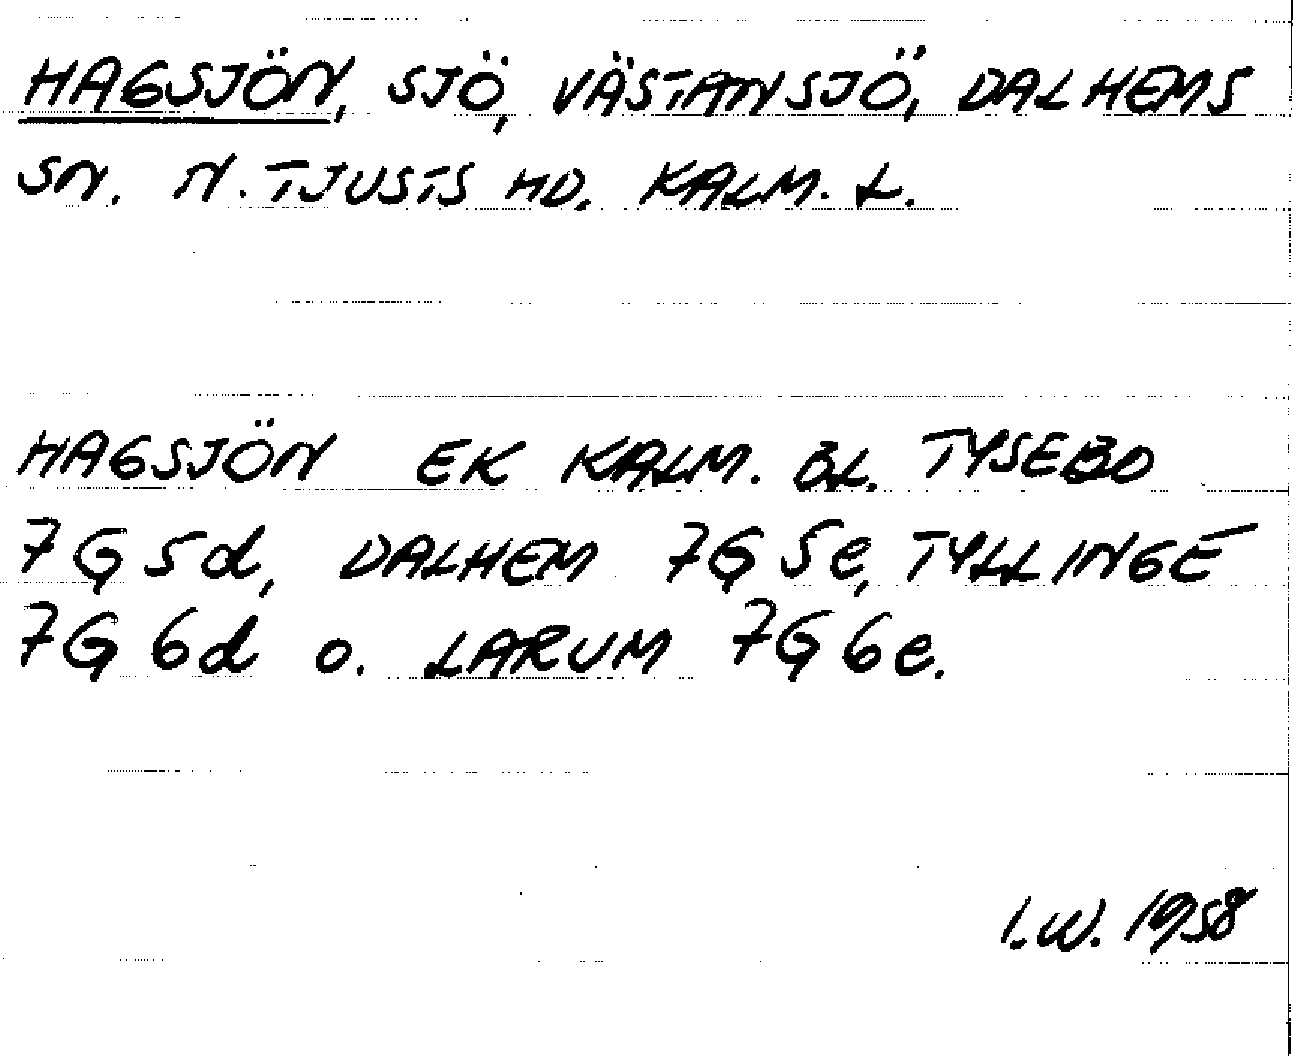 HAGSJÖN, SJÖ, VÄSTANSJÖ, DALHEMS
SN. N. TJUSTS HD. KALM. L.
HAGSJÖN EK KALM. BL. TYSEBO
7G 5d, DALHEM 7G 5e, TYLLINGE
7G 6d o. LARUM 7G 6e.
I.W. 1958